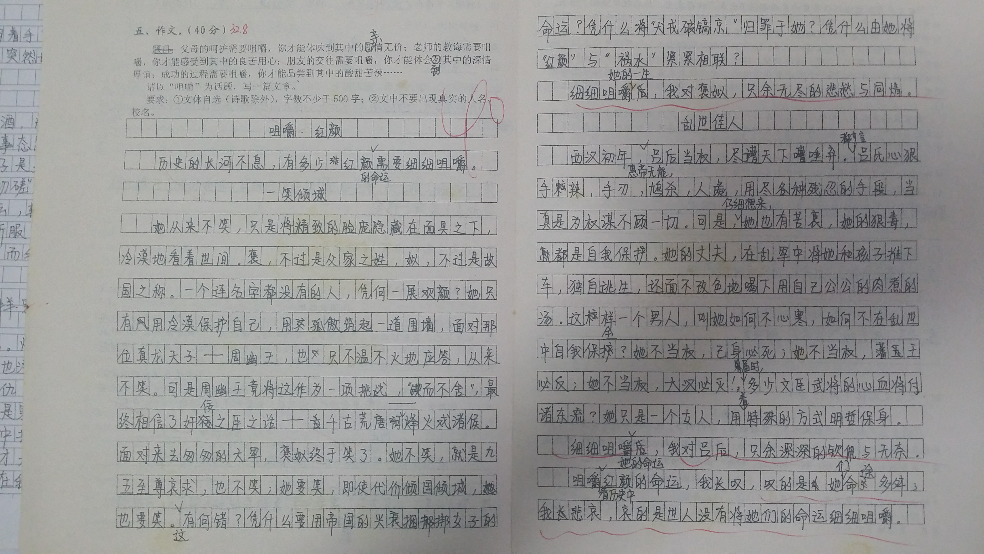 五、作文。(40分)
题目:父母的呵护需要咀嚼,你才能体味到其中的亲情无价;老师的教诲需要咀
嚼,你才能感受到其中的良苦用心;朋友的交往需要咀嚼,你才能体会到其中的深情
厚谊;成功的过程需要咀嚼,你才能品尝到其中的酸甜苦辣……
请以“咀嚼”为话题,写一篇文章。
要求:①文体自选(诗歌除外),字数不少于500字;②文中不要出现真实的人名、
校名。
咀嚼 红颜
历史的长河不息,有多少红颜的命运需要细细咀嚼。
一笑倾城
她从来不笑,只是将精致的脸庞隐藏在面具之下,
冷漠地看着世间。褒,不过是父家之姓,姒,不过是故
国之称。一个连名字都没有的人,凭何一展欢颜?她只
有用冷漠保护自己,用孤傲筑起一道围墙,面对那
位真龙天子——周幽王,也只不温不火地应答,从来
不笑。可是周幽王竟将这作为一项挑战,“锲而不舍”,最
终相信了奸佞之臣之话——千古荒唐烽火戏诸侯。
面对来去匆匆的大军,褒姒终于笑了。她不笑,就是九
五至尊哀求,也不笑;她要笑,即使代价倾国倾城,
也要笑。这有何错?凭什么要用帝国的兴衰捆绑女子的
命运?凭什么将犬戎破镐京归罪于她?凭什么由她将
“红颜”与“祸水”紧紧相联?
细细咀嚼她的一生后,我对褒姒,只余无尽的悲愁与同情。
乱世佳人
西汉初年,惠帝无能,吕后当权,尽遭天下唾弃。吕氏心狠
手辣,手刃,鸩杀,人彘,用尽各种残忍的手段,当
真是为权谋不顾一切。可是,仔细想来,她也有苦衷,她的狠毒,
都是自我保护。她的丈夫,在乱军中将她和孩子推下
车,独自逃生,还面不改色地喝下用自己公公的肉煮的
汤。这样一个男人,叫她如何不心寒,如何不在乱世
中自我保全?她不当权,己身必死;她不当权,诸王
必反;她不当权,大汉必灭!多少文臣武将的心血将付
诸东流?她只是一个女人,用特殊的方式明哲保身。
细细咀嚼后,我对吕后,只余深深的钦佩与无奈。
咀嚼红颜的命运,我长叹,叹的是她命运多舛;
我长悲哀,哀的是世人没有将她们的命运细细咀嚼。